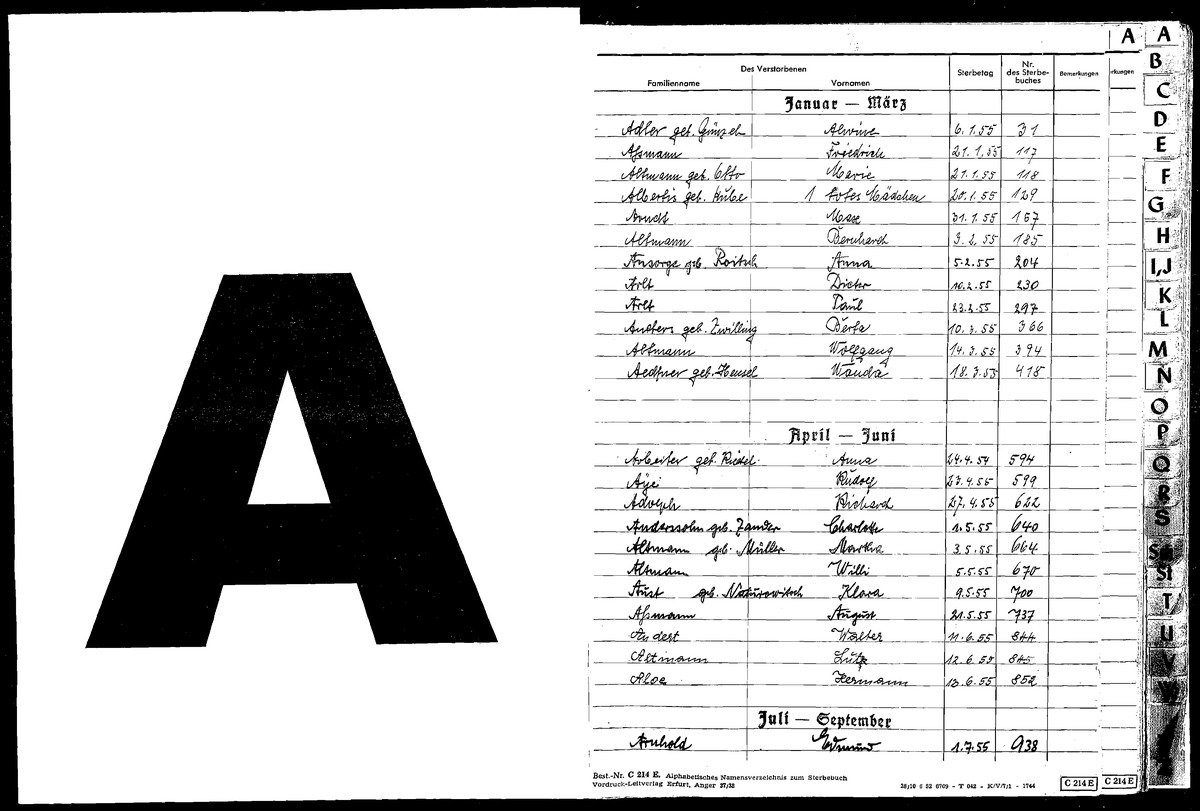 A
A
Des Verstorbenen
Familienname Vornamen Sterbetag Nr. des Sterbebuches Bemerkungen
Januar — März
Adler geb. Günzel Alwine 6.1.55 31
Aßmann Friedrich 21.1.55 117
Altmann geb. Otto Marie 21.1.55 118
Albertis geb. Kube 1 totes Mädchen 20.1.55 129
Arndt Max 31.1.55 167
Altmann Bernhardt 3.2.55 185
Ansorge geb. Roitsch Anna 5.2.55 204
Arlt Dieter 10.2.55 230
Arlt Paul 23.2.55 297
Anders geb. Zwilling Berta 10.3.55 366
Altmann Wolfgang 14.3.55 394
geb. Hensel Wanda 18.3.55 418
April — Juni
Arbeiter geb. Riedel Anna 24.4.54 594
Rudolf 23.4.55 599
Adolph Richard 27.4.55 622
Anderssohn geb. Zander Charlotte 1.5.55 640
Altmann geb. Müller Martha 3.5.55 664
Altmann Willi 5.5.55 670
Aust geb. Naturowitsch Klara 9.5.55 700
Aßmann August 21.5.55 737
Andert Walter 11.6.55 844
Altmann Lutz 12.6.55 845
Aloe Hermann 13.6.55 852
Juli — September
Arnhold Edmund 1.7.55 938
Best.-Nr. C 214 E. Alphabetisches Namensverzeichnis zum Sterbebuch
Vordruck-Leitverlag Erfurt, Anger 37/38
C 214 E
A
rkungen
C 214 E
A
B
C
D
E
F
G
H
I,J
K
L
M
N
O
P
Q
R
S
St
T
U
V
W